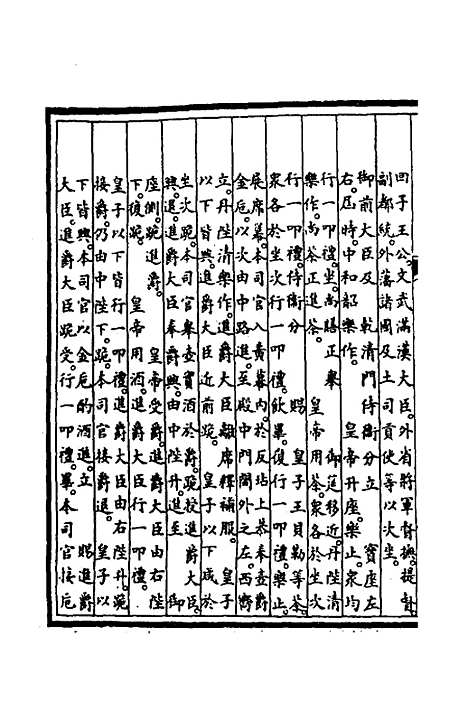 回子王公文武滿漢大臣外省將軍督撫提督
副都統外藩諸國及土司貢使等以次坐
御前大臣及　乾清門侍衛分立　寶座左
右屆時中和韶樂作　皇帝升座樂止衆均
行一叩禮坐尚膳正舉　御筵移近丹陛清
樂作尚茶正進茶　皇帝用茶衆各於坐次
行一叩禮侍衛分　賜　皇子王貝勒等茶
衆各於坐次行一叩禮飲畢復行一叩禮樂止
展席冪本司官入黄幕內於反坫上恭奉壺爵
金卮以次由中路進至殿中門閾外之左西嚮
立丹陛清樂作進爵大臣離席釋補服　皇子
以下皆興進爵大臣近前跪　皇子以下咸於
坐次跪本司官舉壺實酒於爵跪授進爵大臣
興退進爵大臣奉爵興由中陛升進至　御
座側跪進爵　皇帝受爵進爵大臣由右陛
下復跪　皇帝用酒進爵大臣行一叩禮
皇子以下皆行一叩禮進爵大臣由右陛升跪
接爵仍由中陛下跪本司官接爵退　皇子以
下皆興本司官以金卮酌酒進立　賜進爵
大臣進爵大臣跪受行一叩禮畢本司官接卮